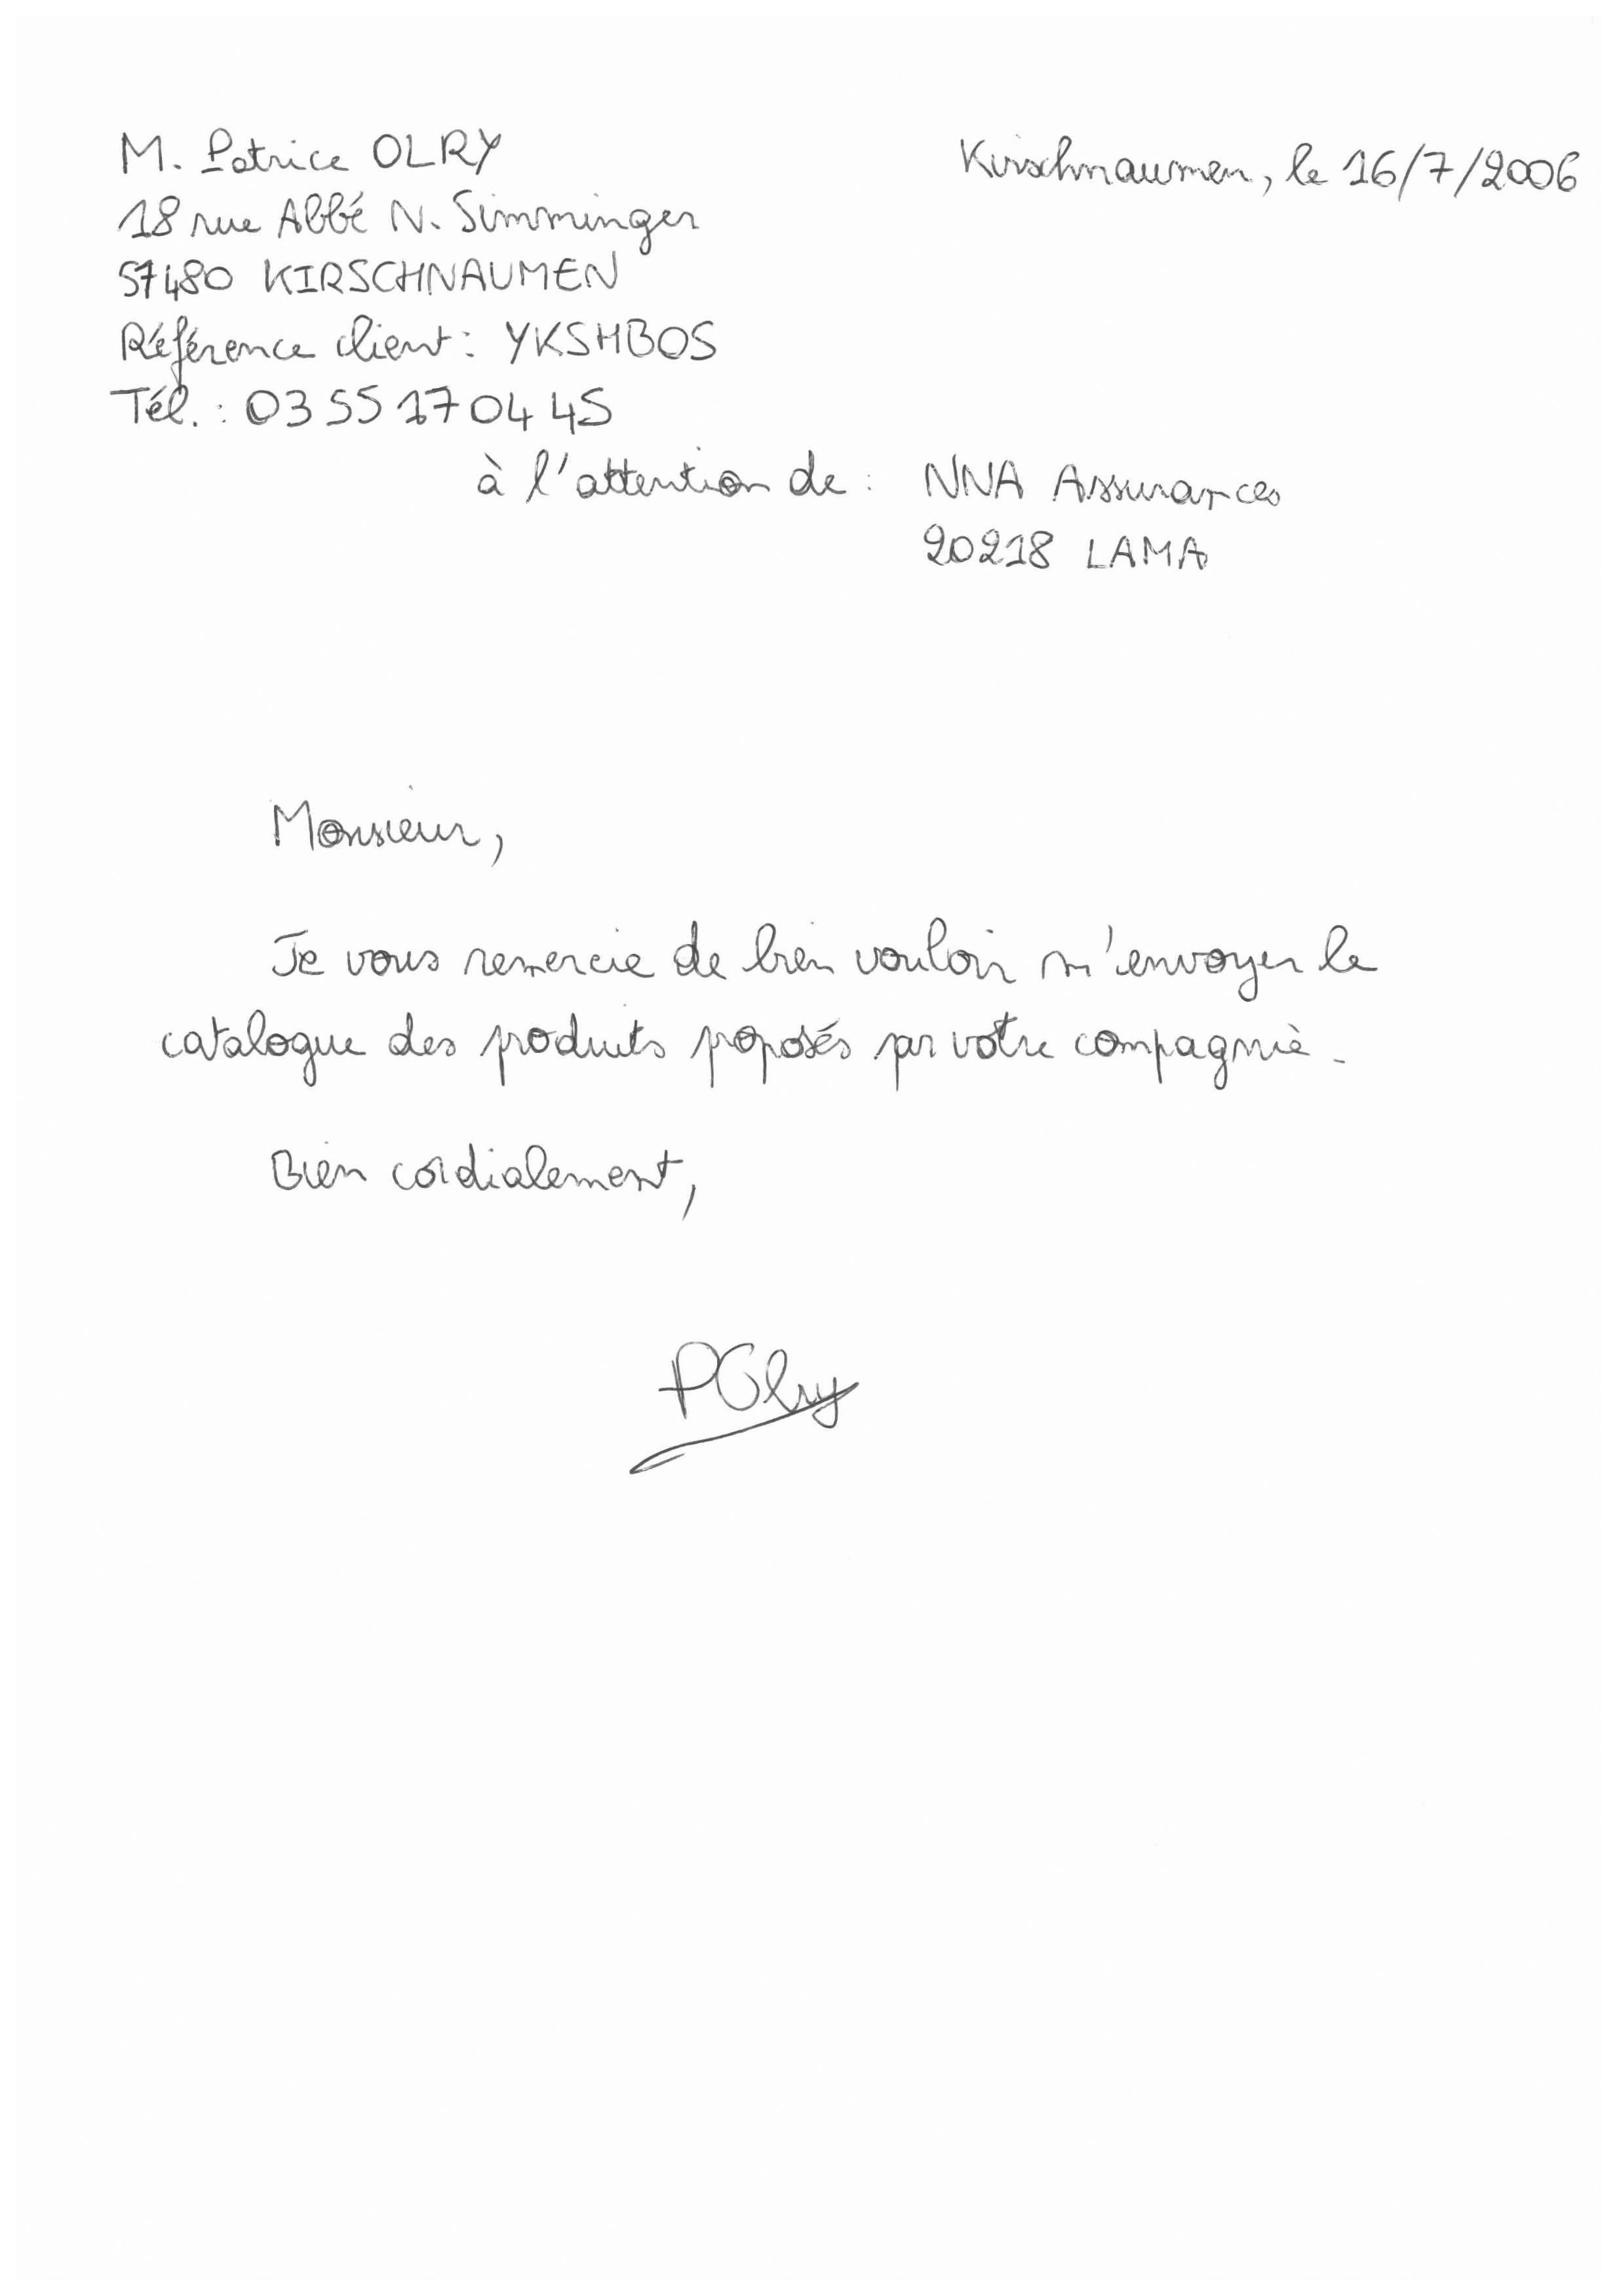 M. Patrice OLRY
Kirschnaumen, le 16/7/2006
18 rue Abbé N. Simminger
57480 KIRSCHNAUMEN
Référence client : YKSHBOS
Tél. : 03 55 17 04 45
à l'attention de : NNA Assurances
20218 LAMA
Monsieur,
Je vous remercie de bien vouloir m'envoyer le
catalogue des produits proposés par votre compagnie.
Bien cordialement,
POlry